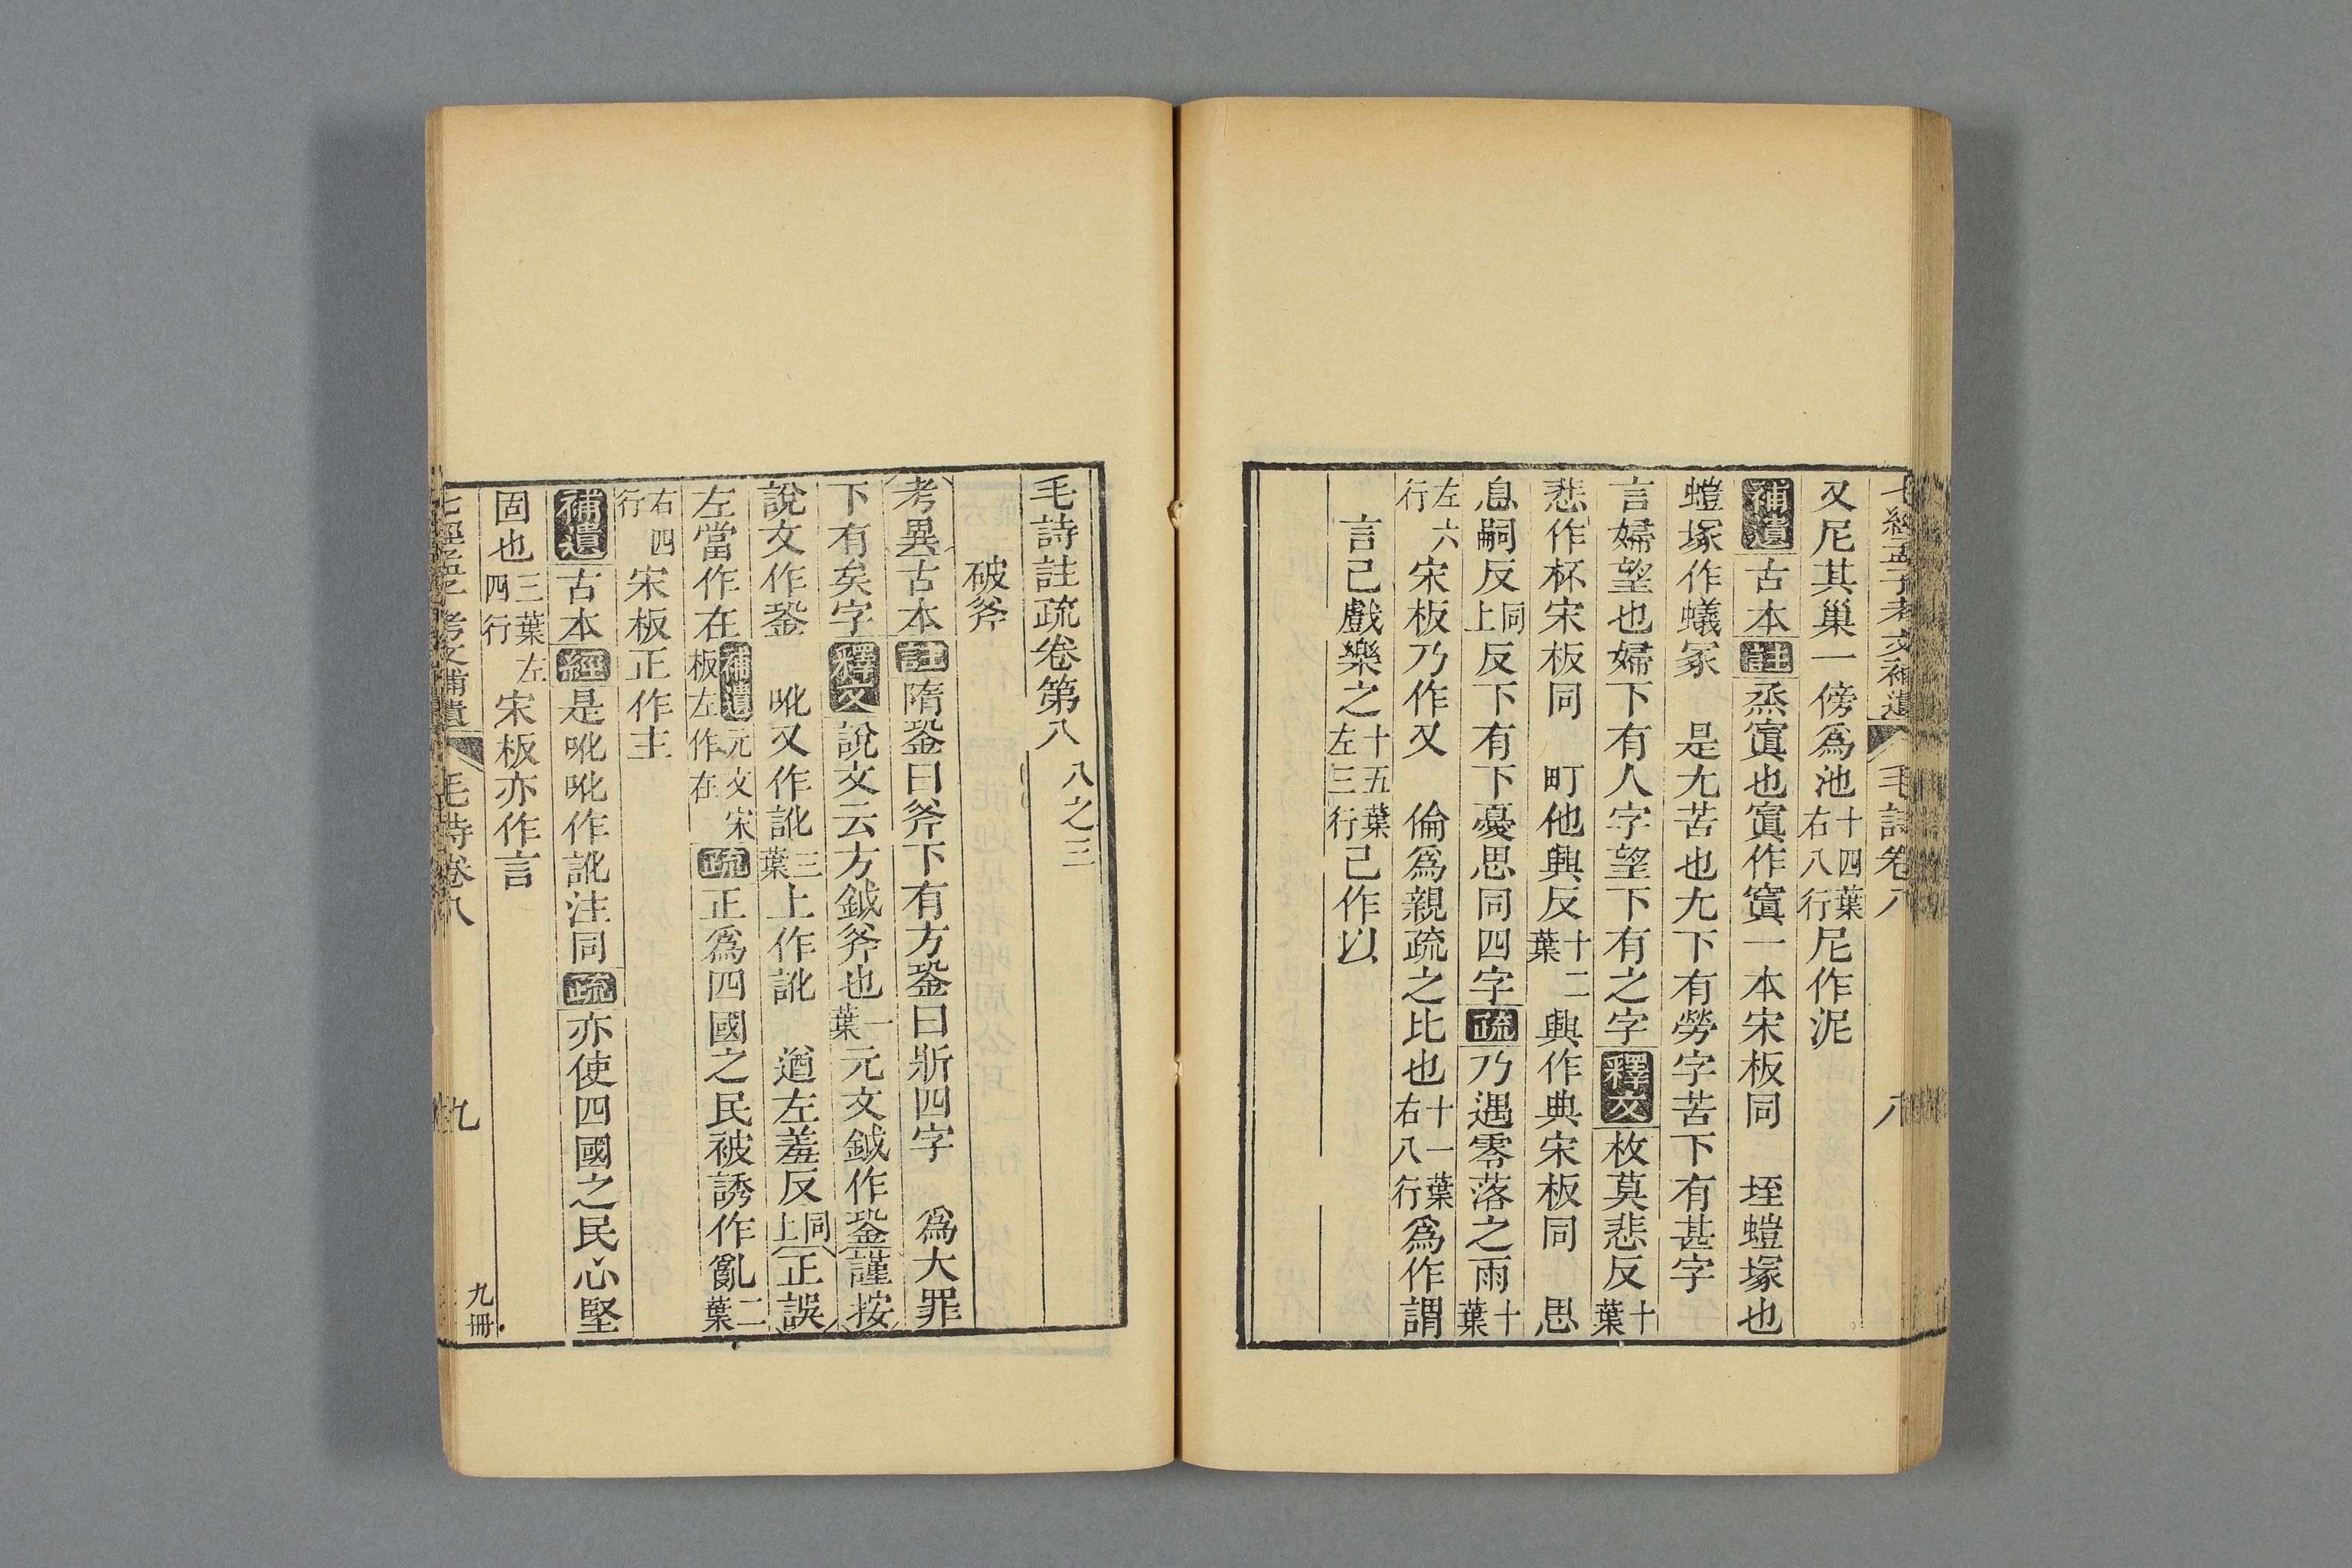 七經孟子考文補遺 毛詩卷八 八
又尼其巢一傍爲池十四葉右八行尼作泥
補遺古本註烝窴也窴作寘一本宋板同 垤螘塚也
螘塚作蟻冢 是尤苦也尤下有勞字苦下有甚字
言婦望也婦下有人字望下有之字釋文枚莫悲反十葉
悲作杯宋板同 町他興反十二葉興作典宋板同 思
息嗣反同上反下有下憂思同四字疏乃遇零落之雨十葉
左六行宋板乃作又 倫爲親疏之比也十一葉右八行爲作謂
言己戲樂之十五葉左三行己作以
毛詩註疏卷第八 八之三
破斧
考異古本註隋銎曰斧下有方銎曰斨四字 爲大罪
下有矣字釋文說文云方鉞斧也一葉元文鉞作銎謹按
說文作銎 吪又作訛三葉上作訛 遒左羞反同上正誤
左當作在補遺元文宋板左作在疏正爲四國之民被誘作亂二葉
右四行宋板正作主
補遺古本經是吪吪作訛注同疏亦使四國之民心堅
固也三葉左四行宋板亦作言
七經孟子考文補遺 毛詩卷八 九 九冊